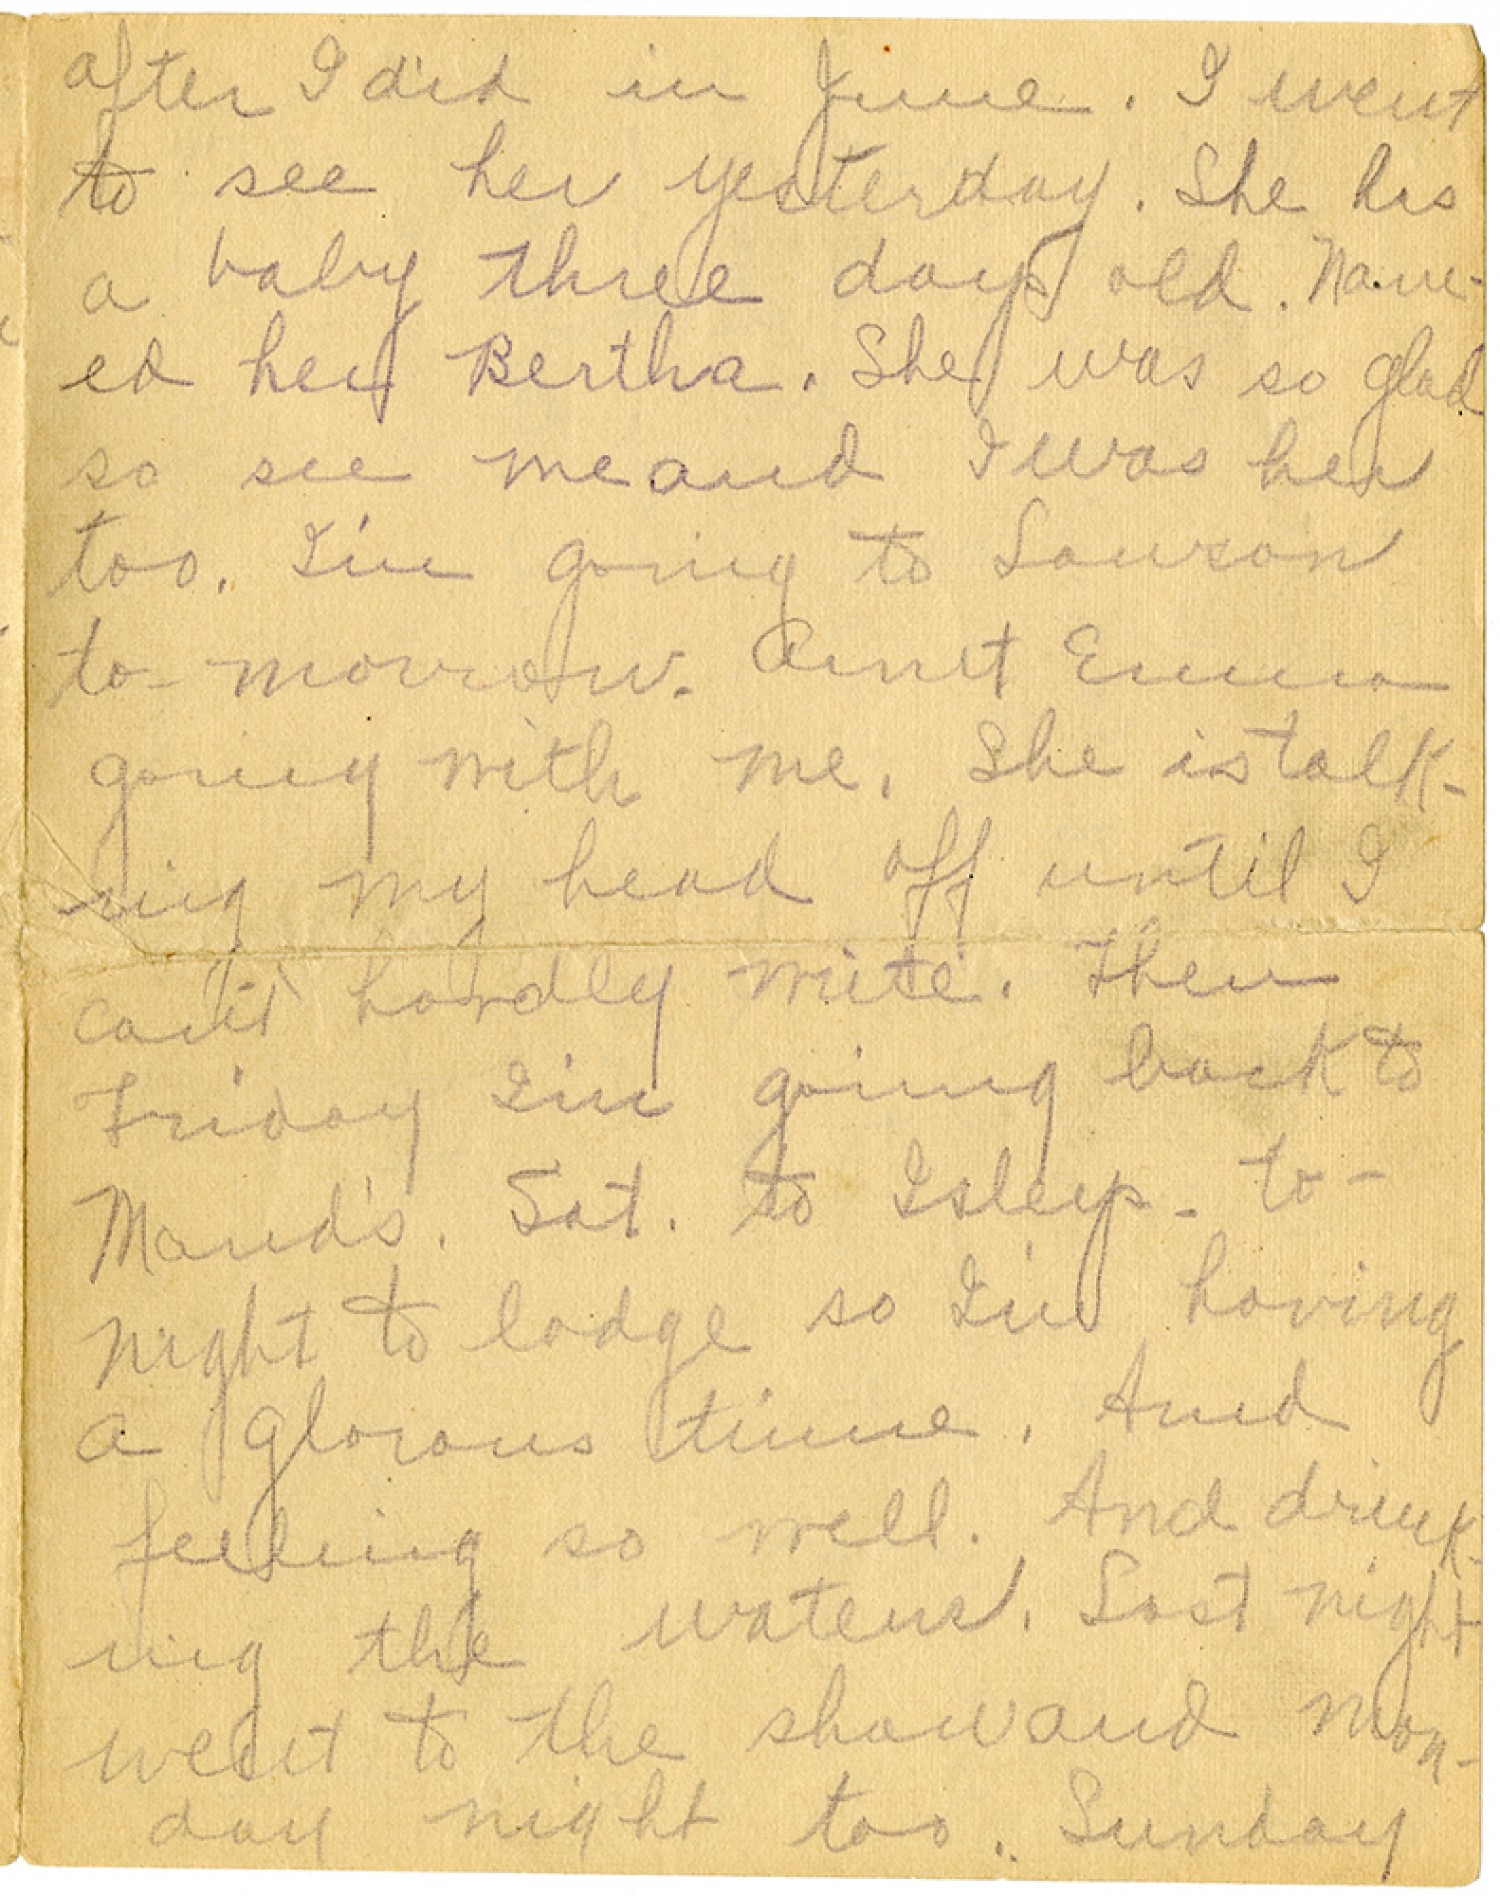 after I did in June. I went
to see her yesterday. She has
a baby three days old. Nam-
ed her Bertha. She was so glad
so see me and I was her
too. I'm going to Lawson
to-morrow. Aunt Emma
going with me. She is talk-
ing my head off until I
can't hardly write. Then
Friday I'm going back to
Maud's. Sat. to Isley. to-
night to lodge so I'm having
a glorous time. And
feeling so well. And drink-
ing the waters. Last night
went to the show and Mon-
day night too.. Sunday